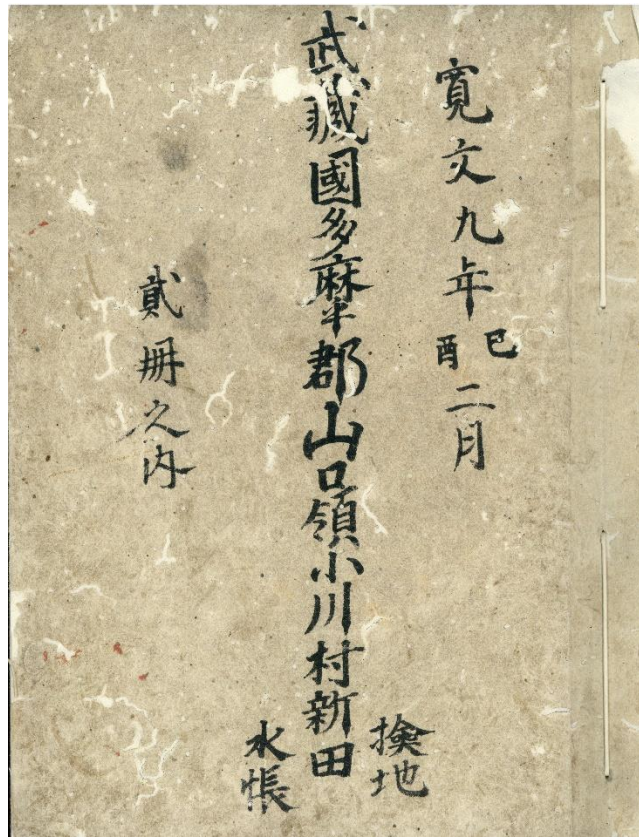 寛文九年己酉二月
武蔵國多摩郡山口領小川村新田
検地
水帳
貳冊之内